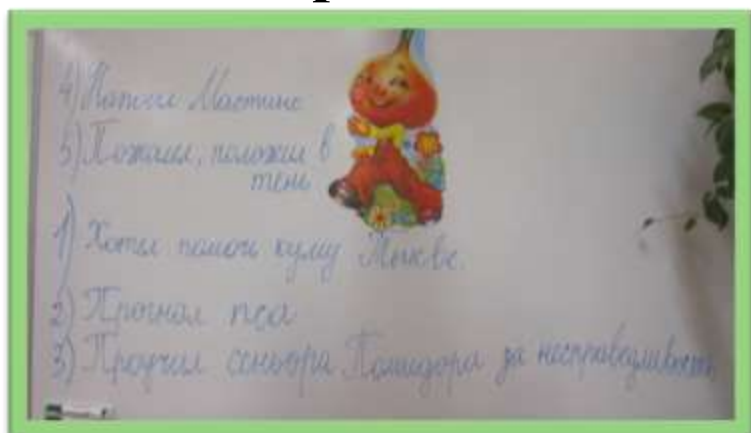 4) Напоил Мастино
5) Пожалел, положил в
тень
1) Хотел помочь куму Тыкве.
2) Прогнал пса
3) Проучил сеньора Помидора за несправедливость